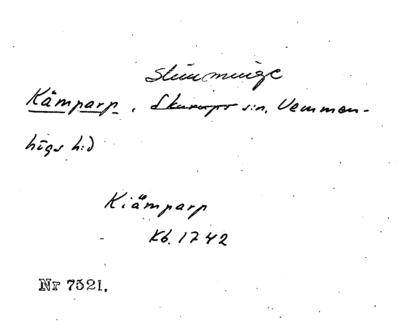 Slimminge
Kämparp, Skurups s:n, Vemmen-
högs h:d
Kiämparp
Kb. 1742
Nr 7521.